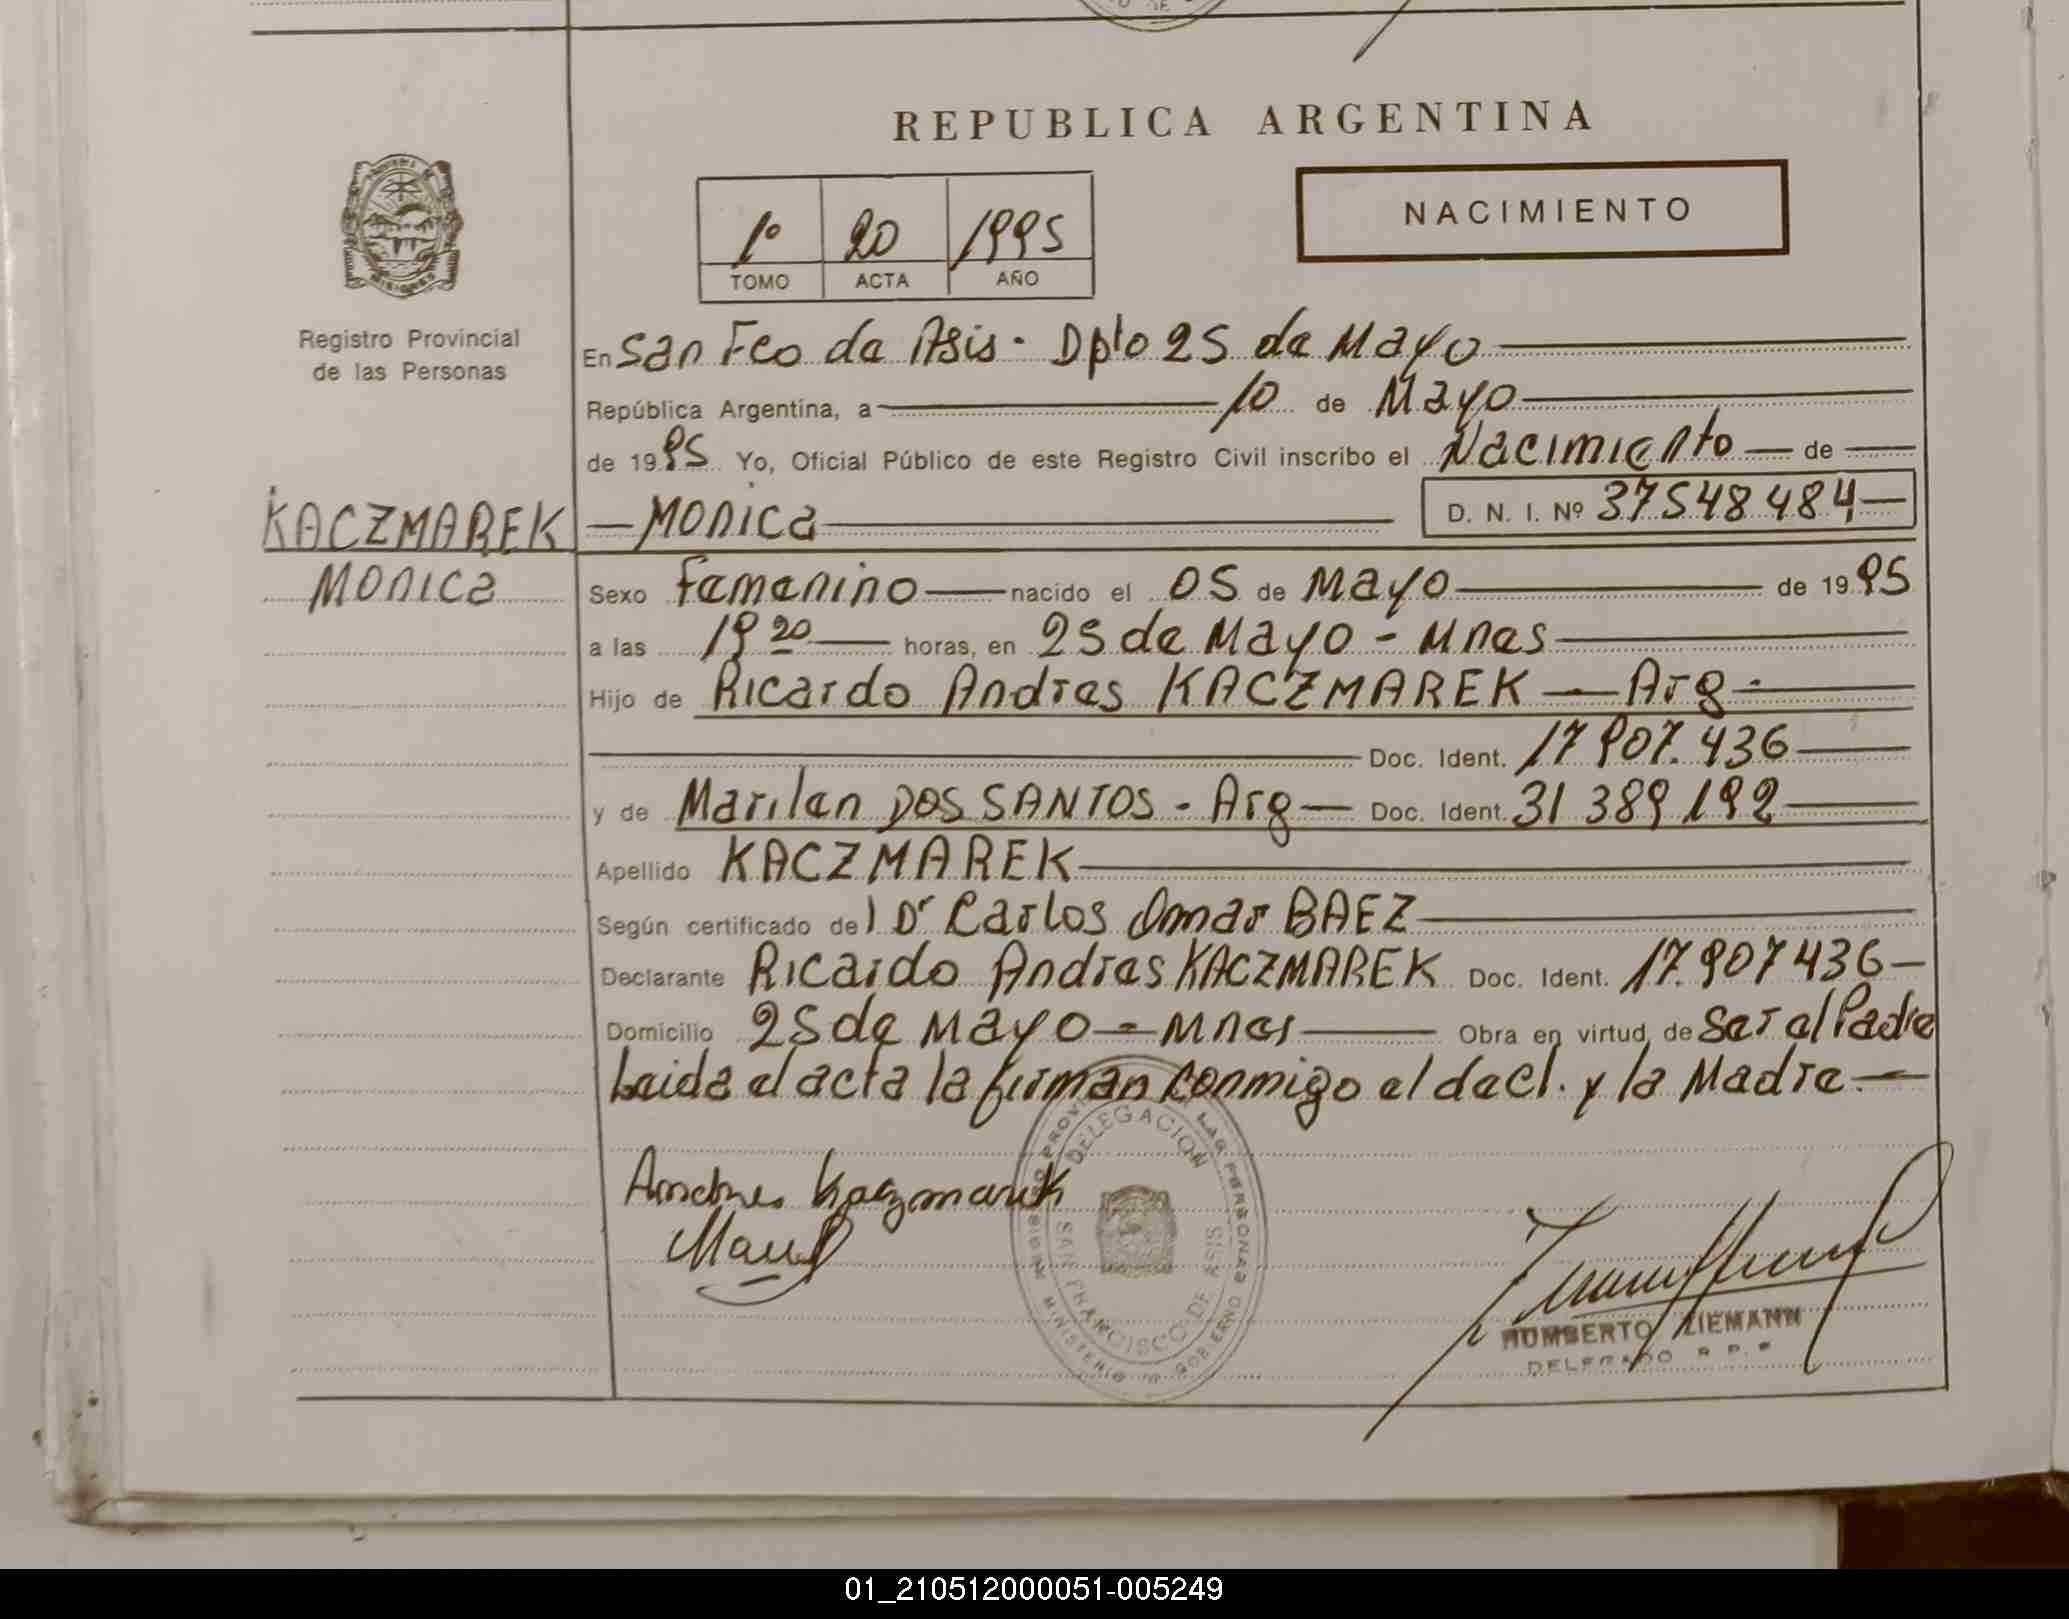 REPUBLICA ARGENTINA
NACIMIENTO
1º 20 1995
TOMO ACTA AÑO
MISIONES
Registro Provincial
de las Personas
En San Fco de Asis - Dpto 25 de Mayo
República Argentina, a 10 de Mayo
de 1995 Yo, Oficial Público de este Registro Civil inscribo el Nacimiento de
KACZMAREK
Monica
Monica D. N. I. Nº 37548484
Sexo Femenino nacido el 05 de Mayo de 1995
a las 19 20 horas, en 25 de Mayo - Mnes
Hijo de Ricardo Andres KACZMAREK - Arg -
Doc. Ident. 17 907.436
y de Marilen DOS SANTOS - Arg - Doc. Ident. 31 389 192
Apellido KACZMAREK
Según certificado del Dr Carlos Omar BAEZ
Declarante Ricardo Andres KACZMAREK Doc. Ident. 17.907436
Domicilio 25 de Mayo - Mnes Obra en virtud de Ser el Padre
Leida el acta la firman conmigo el decl. y la Madre
Andres Kaczmarek
DELEGACION
SAN FRANCISCO DE ASIS
HUMBERTO ZIEMANN
DELEGADO R.P.P
01_210512000051-005249